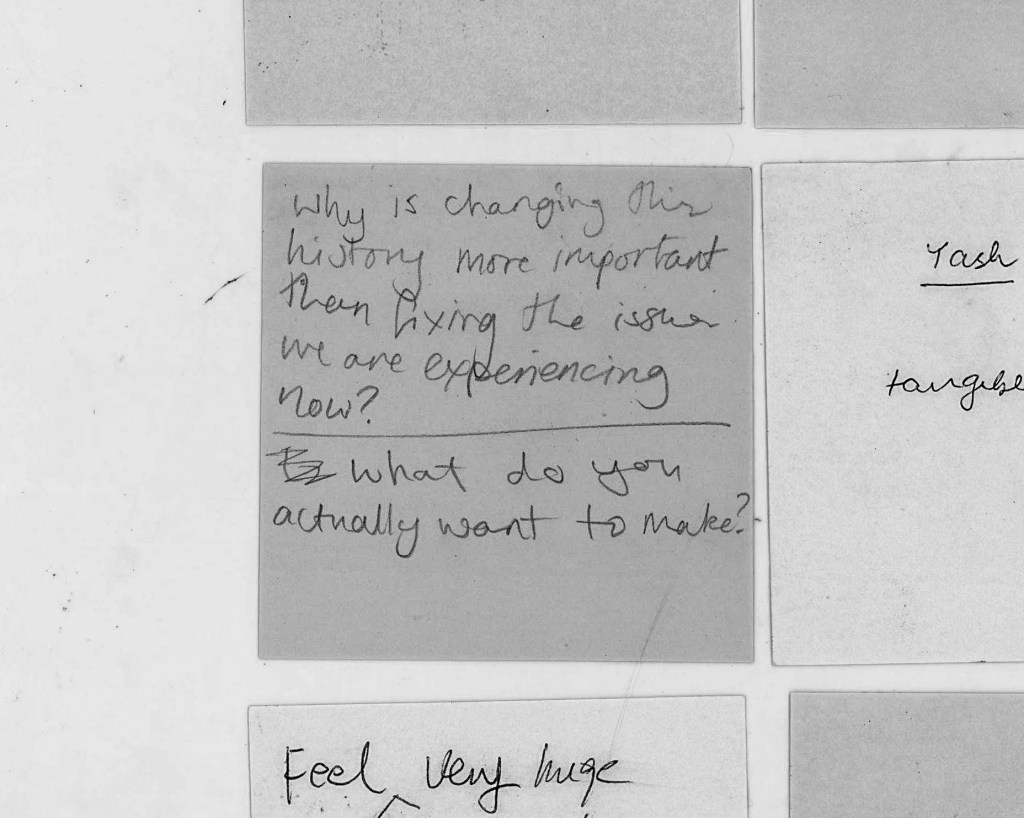 Why is changing this
history more important
than fixing the issues
we are experiencing
now?
What do you
actually want to make?
Yash
Feel very huge